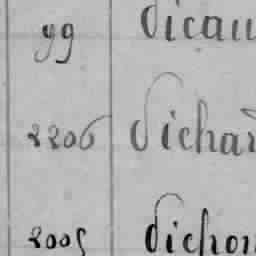 99 Vicau
2206 Vichar
2005 Vichon